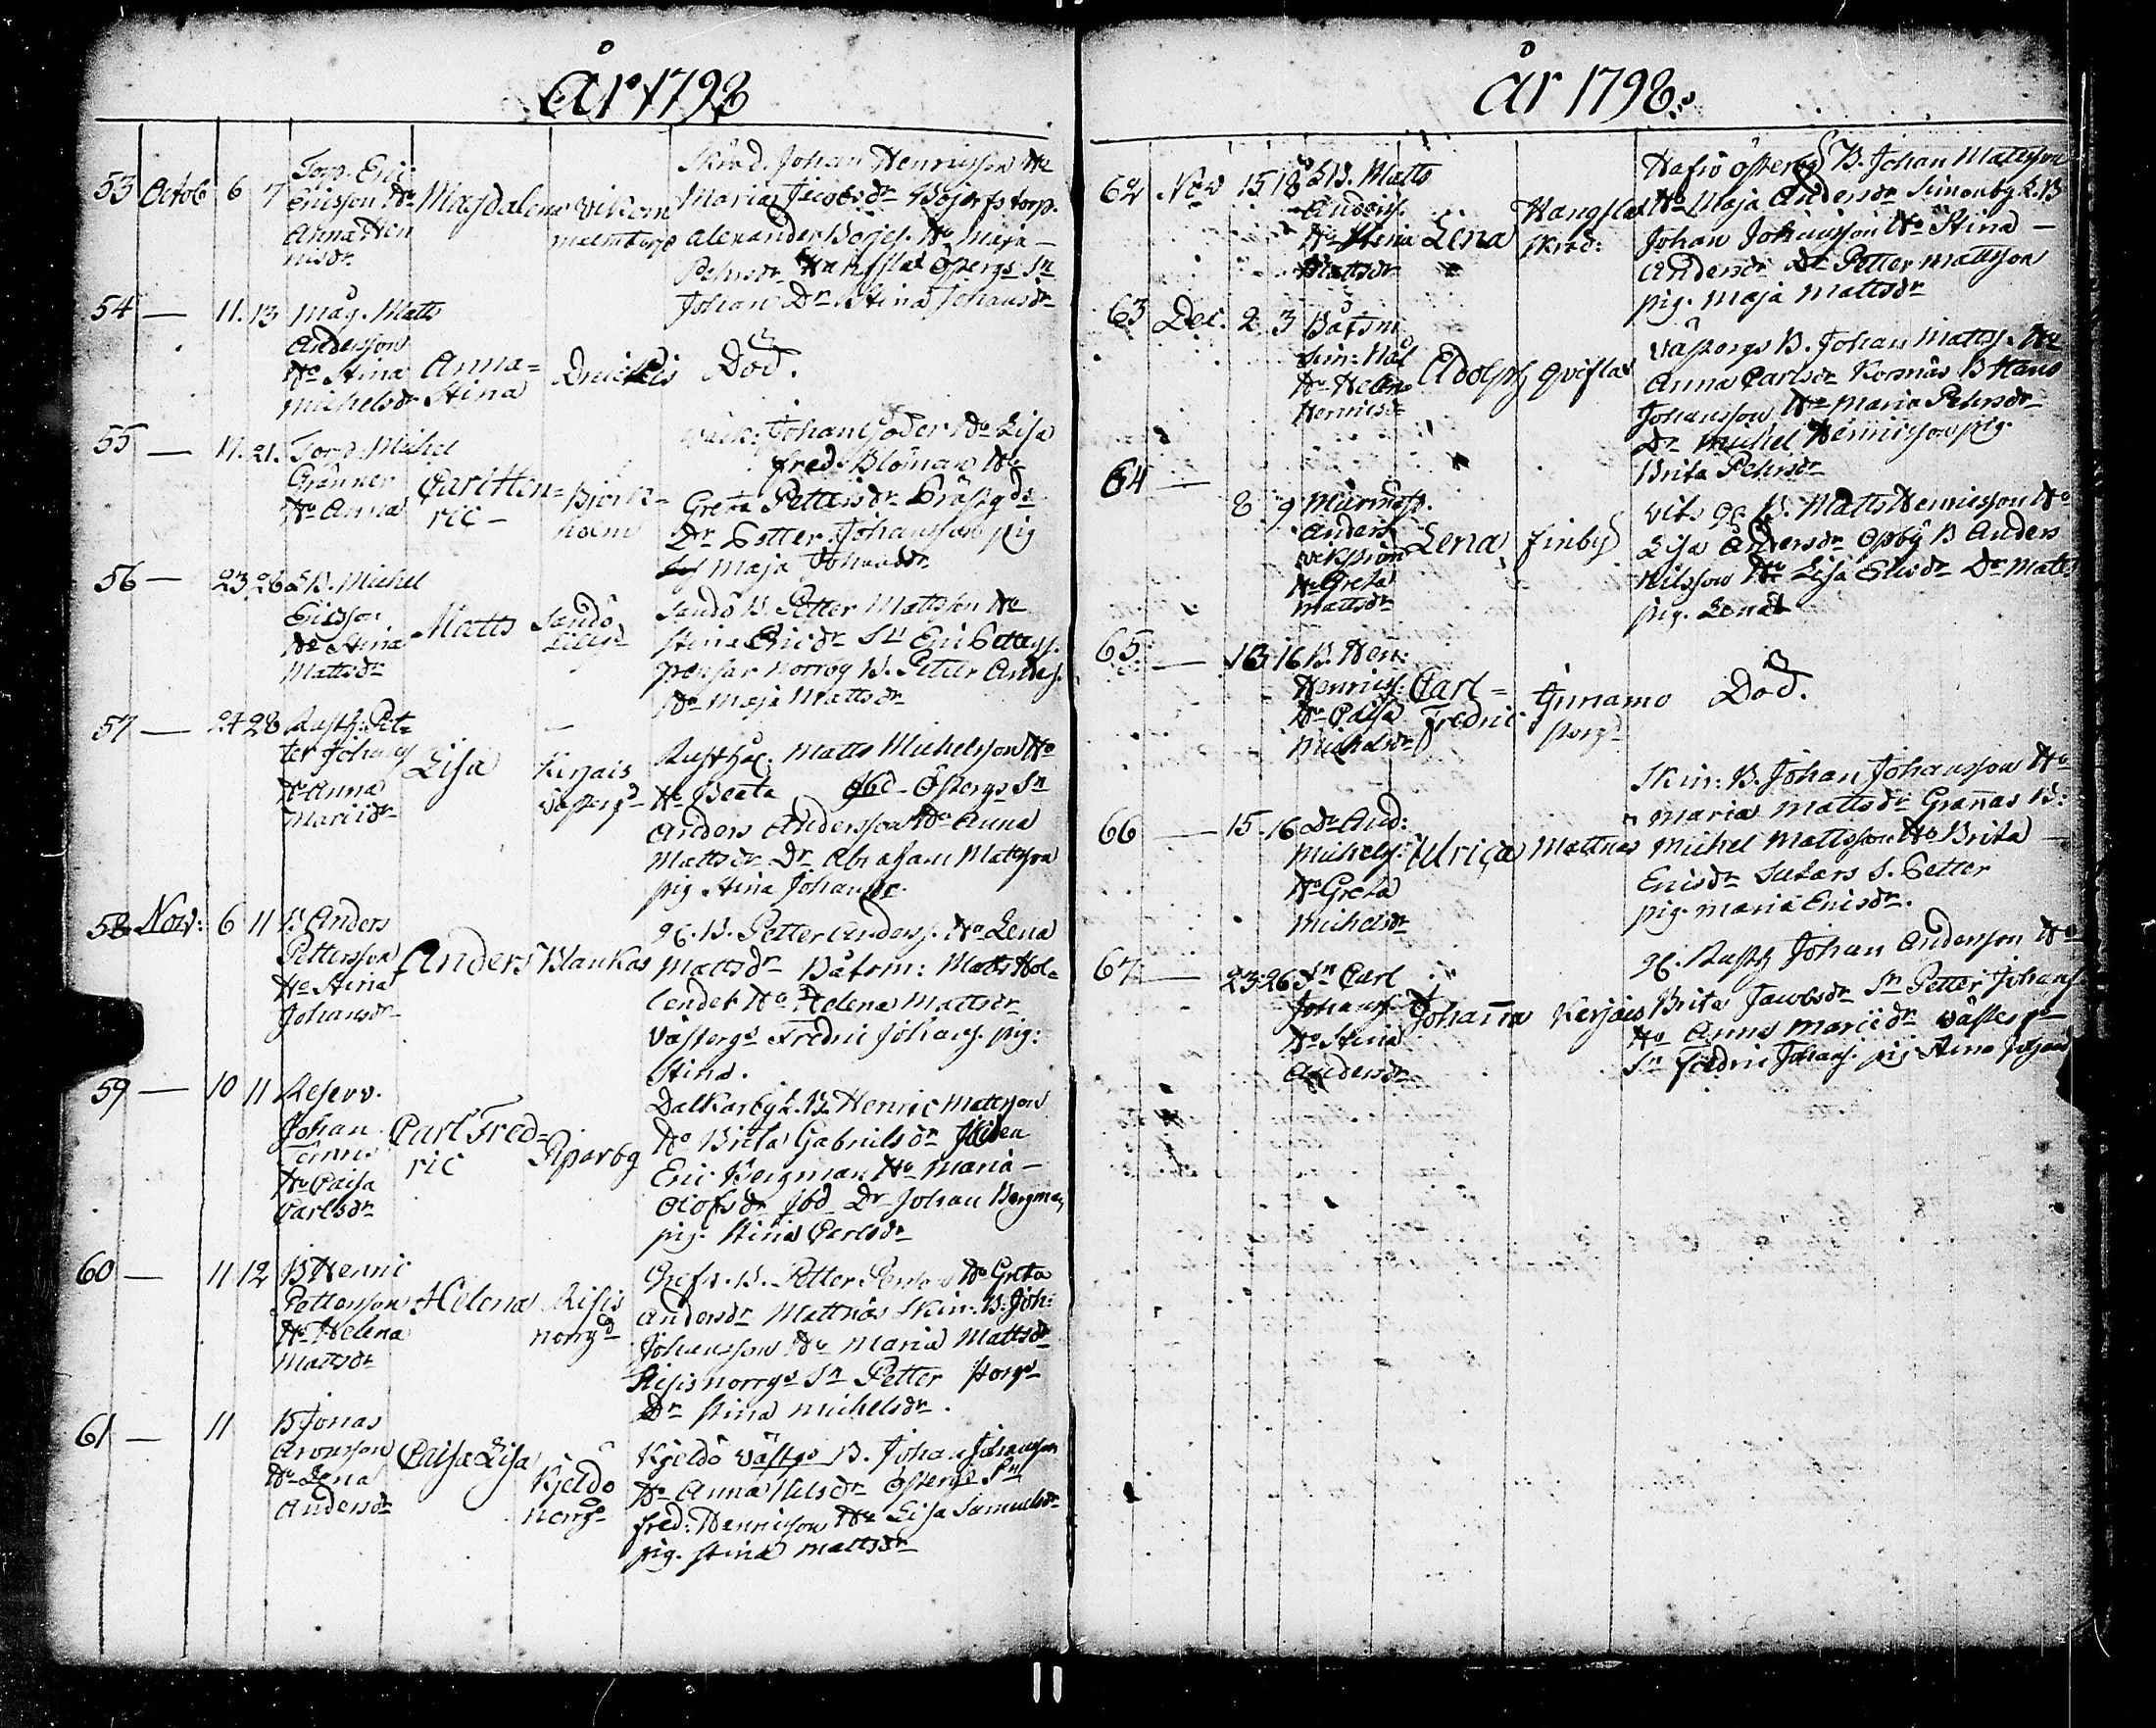 År 1798
53 Octob 6 7 Torp. Eric
Ericsson Ho
Anna Hen
ricsdr
Magdalena
Vikom
malmtorp
Skräd. Johan Henricsson Ho
Maria Jacobsdr
Alexander Börjes. Ho Maja
Pehrsdr Hangslax Östergs Sn
Johan Dr Stina Johansdr
54 — 11. 13 Mag. Matts
Andersson
Ho Stina
Michelsdr
Anna=
Stina
Död.
55 — 11. 21. Torp. Michel
Granner
Ho Anna
Carl Hen=
ric —
Björk=
holm
Johan Söder Ho Lisa
fred. Blöman Ho
Greta Pettersdr
Dr Petter Johansson pig
Maja Johansdr
56 — 23 26 LB. Michel
Ericsson
Ho Stina
Mattsdr
Matts
Sandö
Lillgd
Sandö B. Petter Mattsson Ho
Stina Ericsdr Sn Eric Petters.
Prensar norrg B. Petter Anders.
Ho Maja Mattsdr
57 — 24 28 Rusth. Pet=
ter Johans
Ho Anna
Mariidr
Lisa
Kerjais
Västergd
Rusthål. Matts Michelsson Ho
Ho Beata gbd Östergs Sn
Anders Andersson Ho Anna
Mattsdr Dr Abraham Mattsson
pig Stina Johansdr.
58 Nov: 6 11 B Anders
Pettersson
Ho Stina
Johansdr
Anders
Blankas
gf. B. Petter Anders. Ho Lena
Mattsdr Båtsm: Matts Hol=
lender Ho Helena Mattsdr
Västergs Fredric Johans. pig:
Stina.
59 — 10 11 Reserv.
Johan
Ho Caisa
Carlsdr
Carl Fred=
ric
Riparby
Dalkarby L.B. Henric Mattsson
Ho Brita Gabrielsdr
Eric Bergman Ho Maria —
Olofsdr Ibd Dr Johan Bergman
pig. Stina Carlsdr
60 — 11 12 B Henric
Pettersson
Ho Helena
Mattsdr
Helena
Risis
norrgd
B. Petter Ho Greta
Andersdr Mattnäs Skin: B. Joh:
Johansson Ho Maria Mattsdr
Risis norrgs Sn Petter Storgs
Dr Stina Michelsdr.
61 — 11 B Jonas
Aronsson
Ho Lena
Andersdr
Caisa Lisa
Kjeldö
norrgd
Kjeldö Västgs B. Johan Johansson
Ho Anna Nilsdr Östergs Sn
fred: Henricsson Ho Lisa Samuelsdr
pig. Stina Mattsdr
År 1798.
62 Nov 15 18 LB. Matts
Anders.
Ho Stina
Mattsdr
Lena
Hangslax
skräd:
Östergs B. Johan Mattsson
Ho Maja Andersdr Simonby L.B
Johan Johansson Ho Stina —
Andersdr Dr Petter Mattsson
pig. Maja Mattsdr
63 Dec. 2 3 Båtsm
Sim: Nål
Ho Helena
Henricsdr
Adolph
qvislax
Västergs B. Johan Matts. Ho
Anna Carlsdr Korsnäs B Hans
Johansson Ho Maria Pehrsdr
Dr Michel Henricsson pig.
Brita Pehrsdr
64 — 8 9
Anders
Ho Greta
Mattsdr
Lena
finby
B. Matts Henricsson Ho
Lisa Andersdr Ösby B Anders
Nilsson Ho Lisa Dr Matts
pig. Lena
65 — 13 16 B. Hen:
Henrics.
Ho Caisa
Michelsdr
Carl=
Fredric
Gunamo
storgd
Död.
66 — 15 16 Dr And:
Michels.
Ho Greta
Michelsdr
Ulrica
Mattnäs
Skin: B. Johan Johansson Ho
Maria Mattsdr Granäs B:
Michel Mattsson Ho Brita —
Ericsdr S. Petter
pig. Maria Ericsdr.
67 — 23 26 Sn Carl
Johans.
Ho Stina
Andersdr
Johanna
Kerjais
gf. Rusth Johan Andersson Ho
Brita Jacobsdr Sn Petter Johans.
Ho Anna Mariidr Västergs
Sn fredric Johans. pig Stina Johans